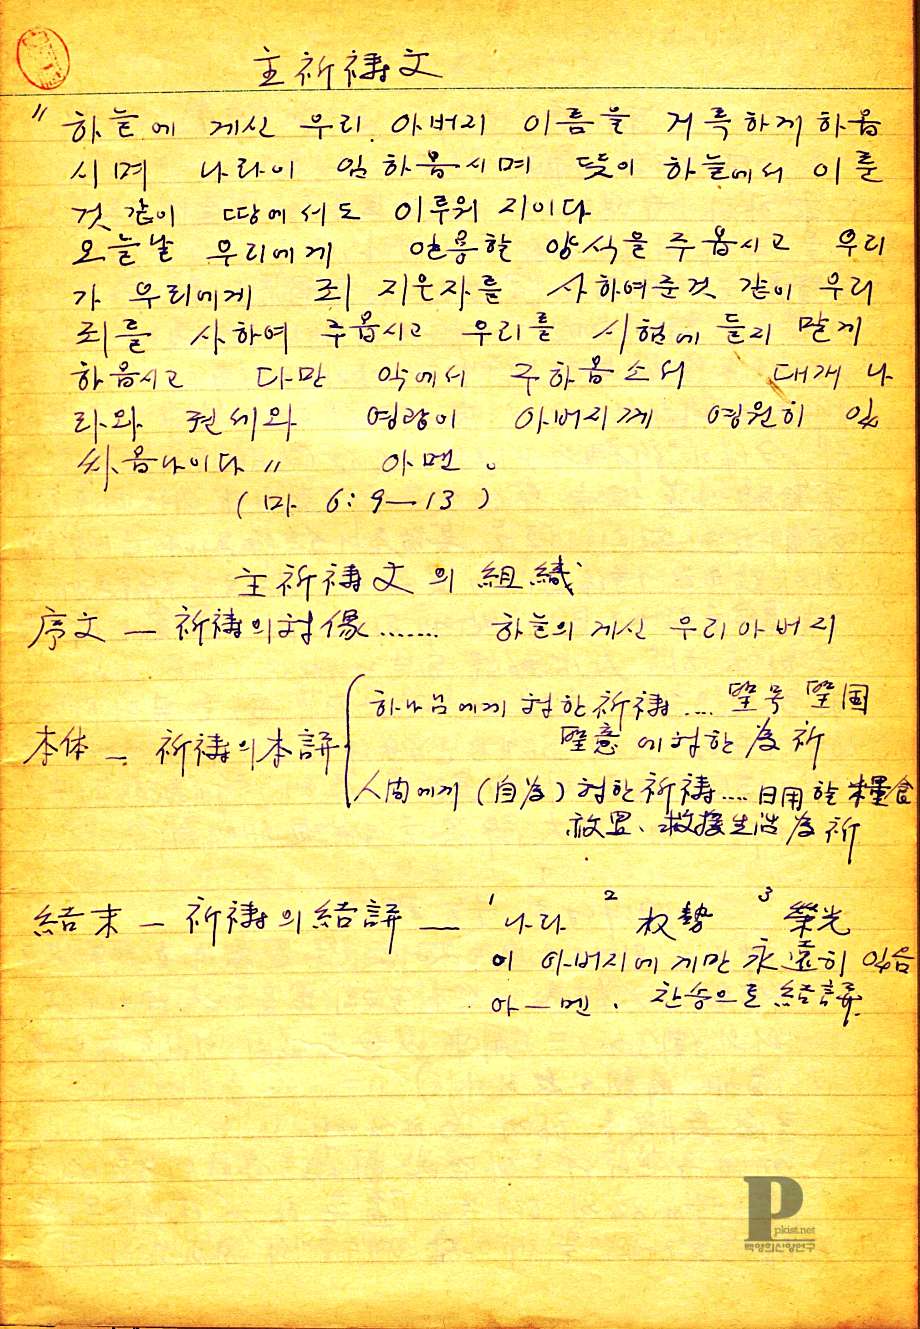 主祈禱文
" 하늘에 계신 우리 아버지 이름을 거륵하게하옵
시며 나라이 임하옵시며 뜻이 하늘에서 이룬
것 같이 땅에서도 이루워 지이다
오늘날 우리에게 일용할 양식을 주옵시고 우리
가 우리에게 죄 지은자를 사하여준것 같이 우리
죄를 사하여 주옵시고 우리를 시험에 들지 말게
하옵시고 다만 악에서 구하옵소서 대개 나
라와 권세와 영광이 아버지께 영원히 있
싸옵나이다 " 아멘。
( 마 6 : 9 — 13 )
主祈禱文의 組織
序文 — 祈禱의 対像 ....... 하늘의 게신 우리아버지
本体 — 祈禱의 本論
하나님에게 対한 祈禱 .... 聖号 聖国
聖意에 対한 為祈
人間에게 (自為) 対한 祈禱 .... 日用할 糧食
赦罪、救援生活 為祈
結末 — 祈禱의 結論 — 1 나라 2 权勢 3 榮光
이 아버지에게만 永遠히 있음
아—멘. 찬송으로 結論
P
pkist.net
백영희신앙연구